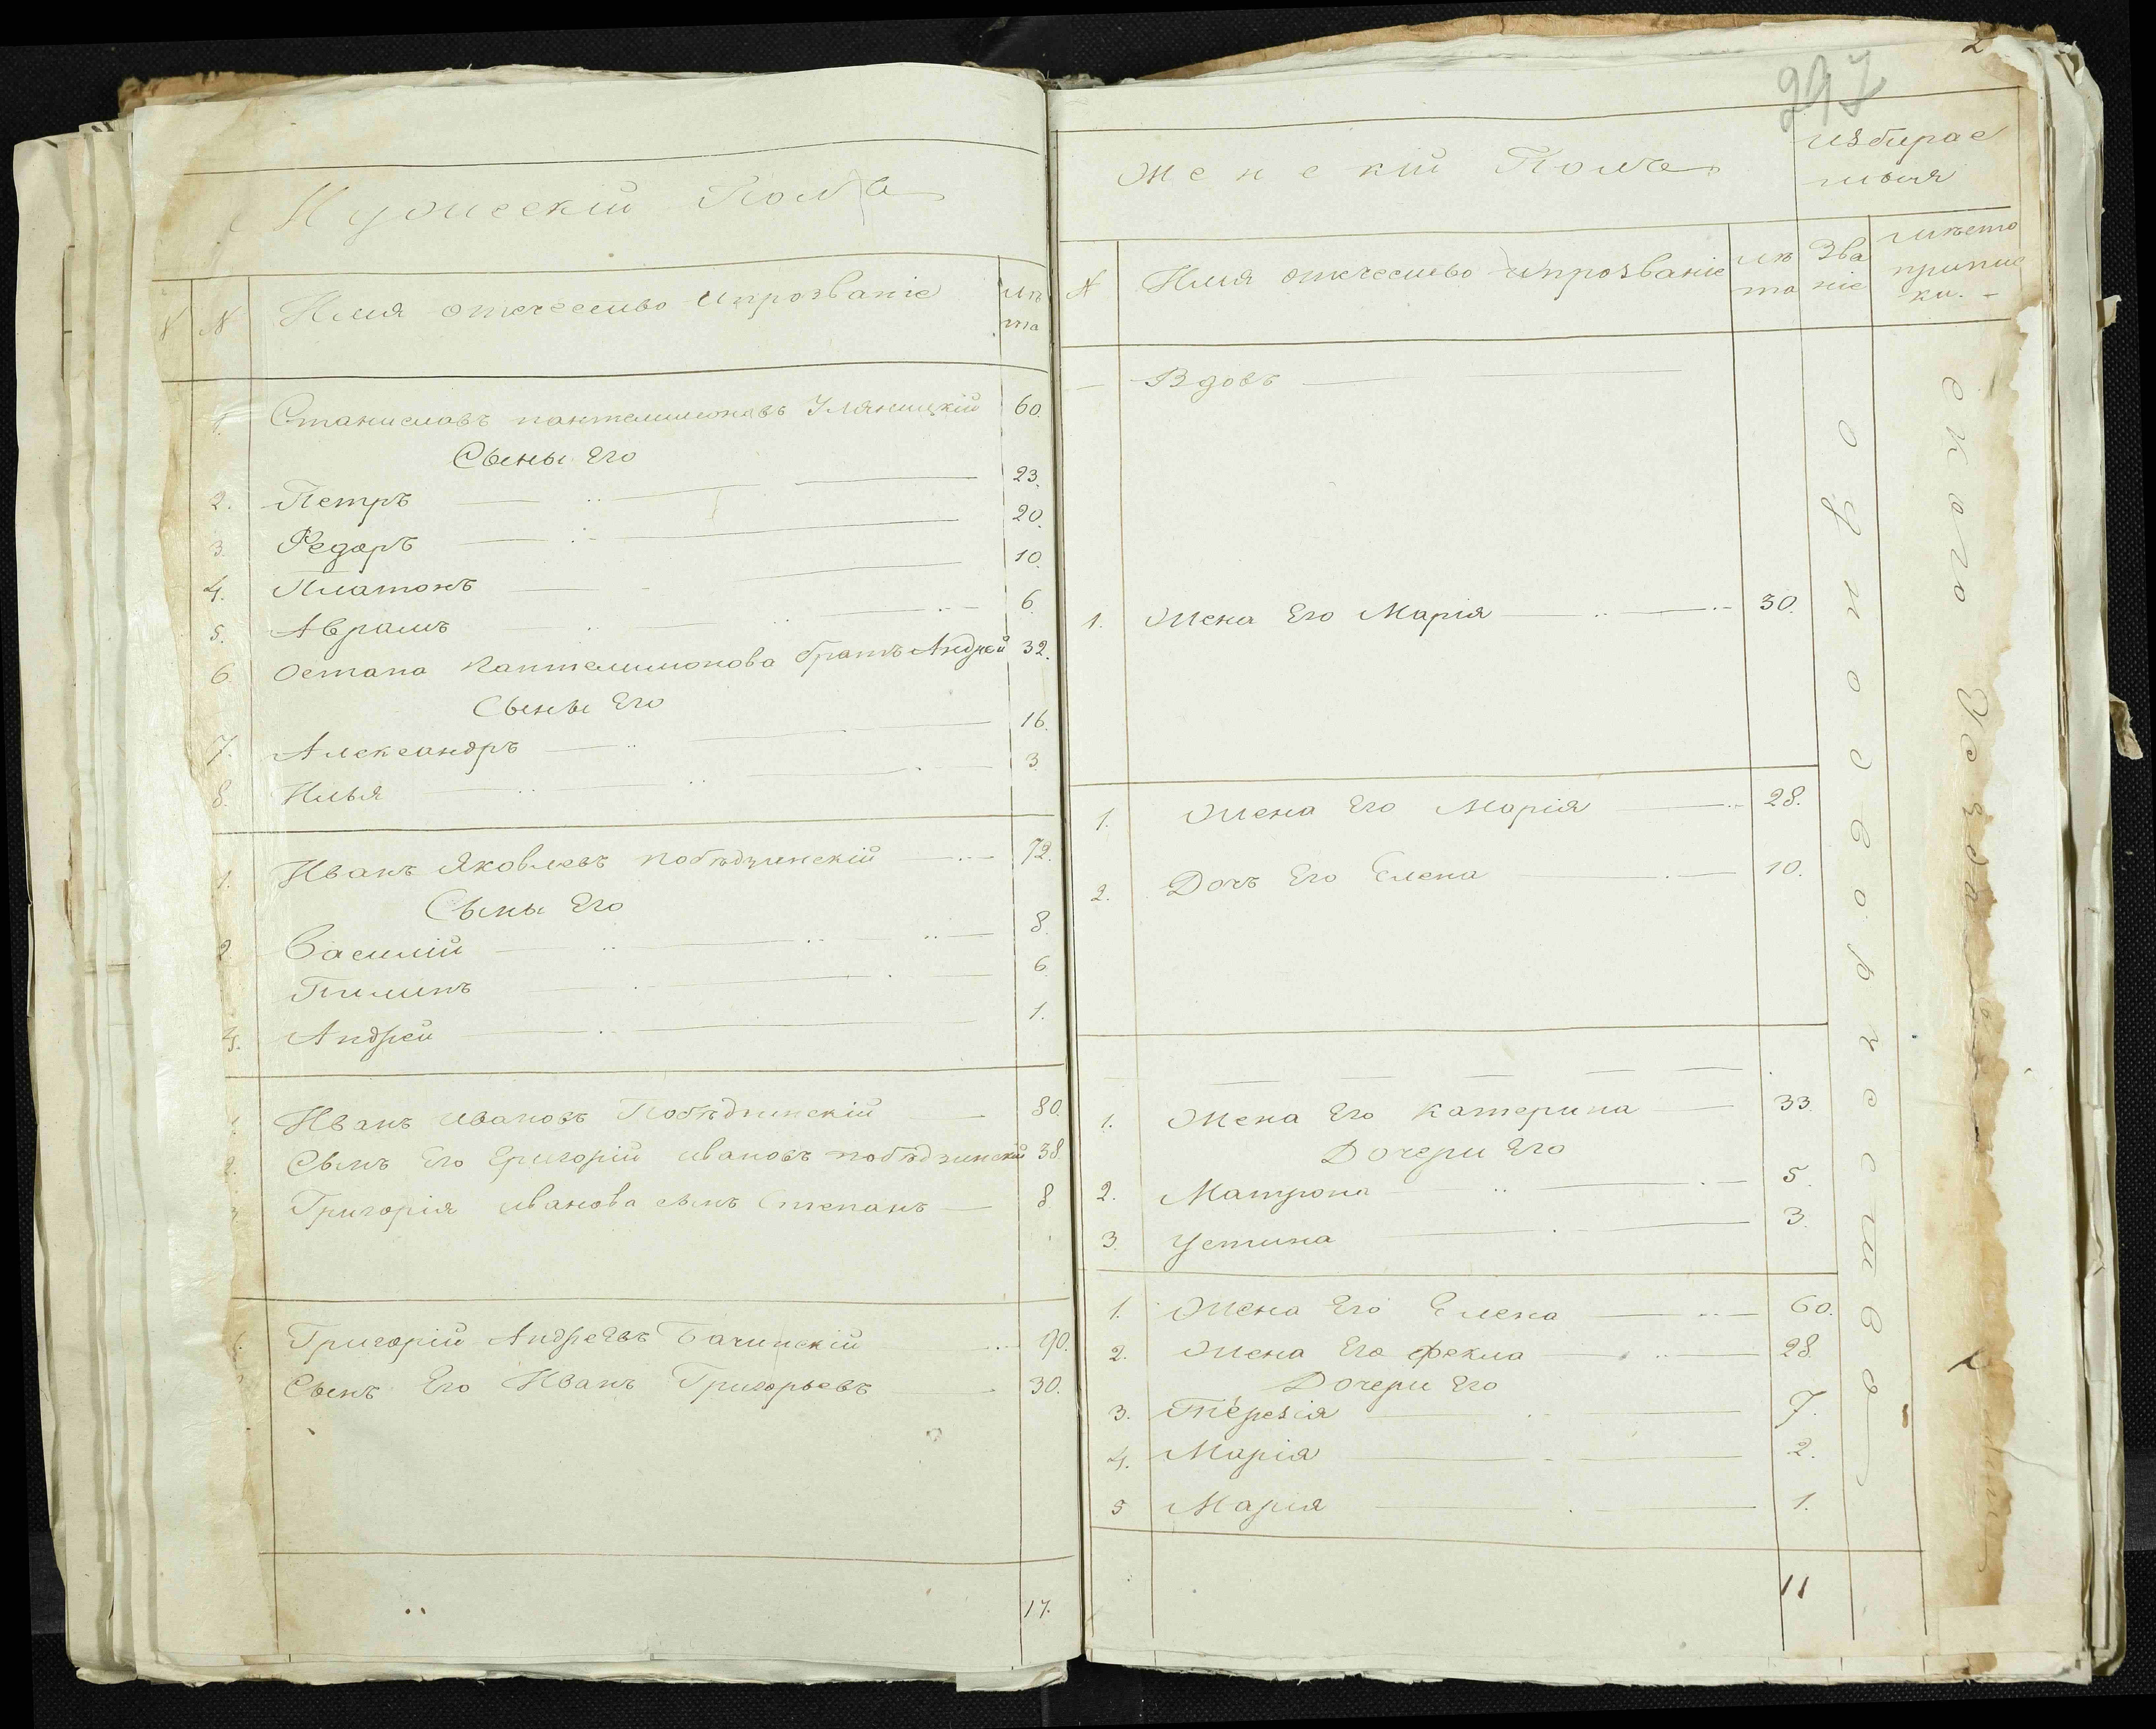 Мужескій Полъ
N N Имя отчество ипрозваніе лѣ
та
1. Станиславъ пантелимоновъ Уляницкій 60.
Сыны Его
2. Петръ 23.
3. Федоръ 20.
4. Платонъ 10.
5. Аврамъ 6.
6. Остапа Пантелимонова братъ Андрей 32.
Сыны Его
7. Александръ 16.
8. Илья 3.
1. Иванъ Яковлевъ побѣдзинскій 72.
Сыны Его
2. Василій 8.
Пилипъ 6.
4. Андрей 1.
1. Иванъ ивановъ Побѣдзинскій 80.
2. Сынъ Его Григорій ивановъ побѣдзинскій 38
3. Григорія иванова сынъ Степанъ 8
1. Григорій Андреевъ Бачинскій 90.
Сынъ Его Иванъ Григорьевъ 30.
17.
2
297
Женскій Полъ
избирае
мыя
N Имя отчество ипрозваніе лѣ
та
Зва
ніе
мѣсто
припис
ки.
Вдовъ
1. Жена Его Марія 30.
1. Жена Его Марія 28.
2. Дочь Его Елена 10.
1. Жена Его Катерина 33.
Дочери Его
2. Матрона 5.
3. Устина 3.
1. Жена Его Елена 60.
2. Жена Его Фекла 28
Дочери Его
3. Терезія 7.
4. Марія 2.
5 Мария 1.
11
однодворчества
ского Уезда